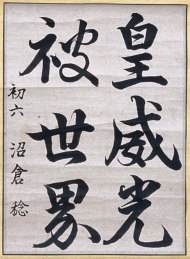 皇威光
被世界
初六 沼倉稔